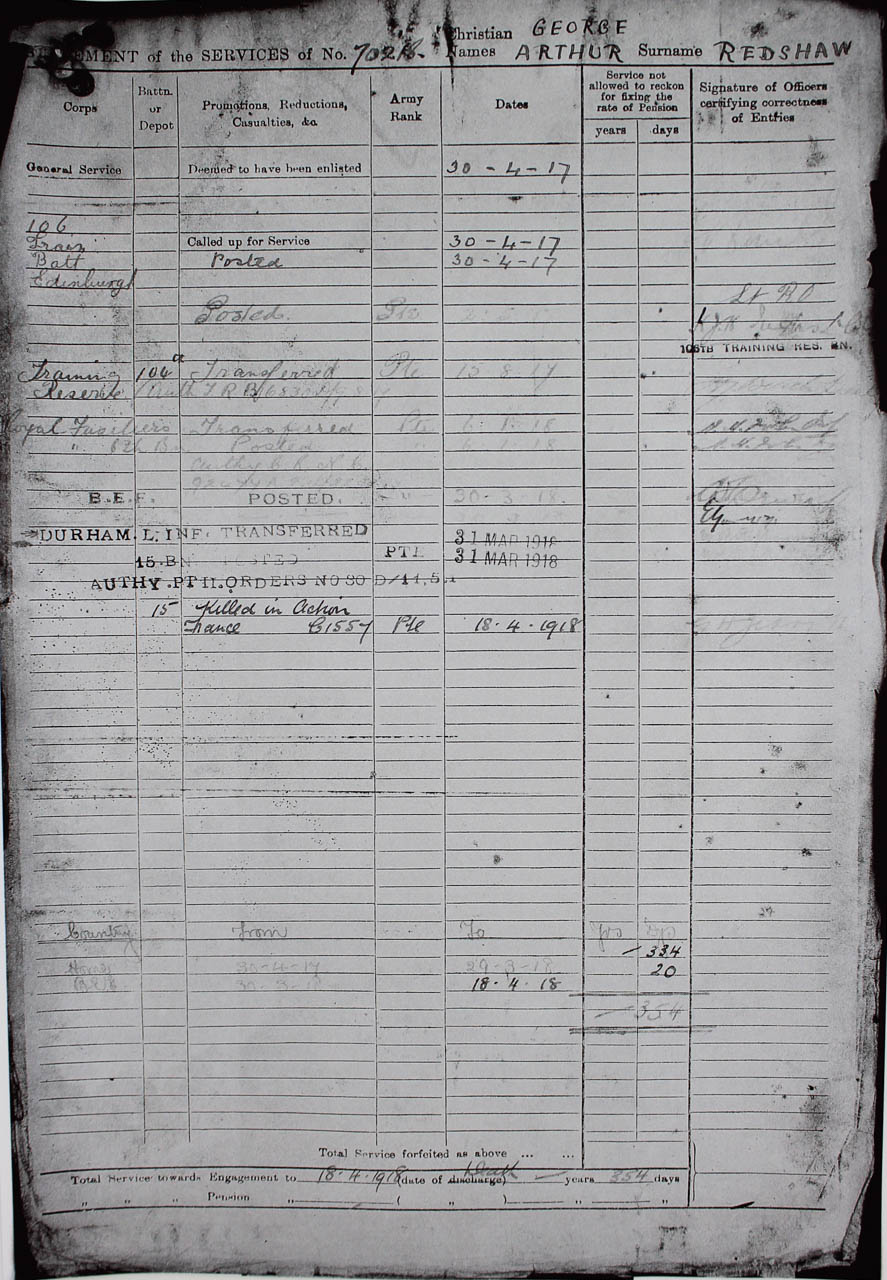 Christian GEORGE
MENT of the SERVICES of No. Names ARTHUR Surname REDSHAW
Corps
Battn. or Depot
Promotions, Reductions, Casualties, &c.
Army Rank
Dates
Service not allowed to reckon for fixing the rate of Pension
years days
Signature of Officers certifying correctness of Entries
General Service Deemed to have been enlisted 30-4-17
106
Train Called up for Service 30-4-17
Batt Posted 30-4-17
Edinburgh
Posted. Pte
106TH TRAINING RES. BN.
Training Transferred Pte 15-8-17
Reserve
Royal Fusiliers Transferred Pte
" 6th Bn Posted " 18
B.E.F. POSTED. " 30-3-18.
DURHAM.L.INF. TRANSFERRED 31 MAR 1918
15.BN POSTED PTE 31 MAR 1918
AUTHY.PT II.ORDERS NO 30
15 Killed in Action
France B1557 Pte 18.4.1918
Country From To Yrs Dys
— 334
Home 30-4-17 29-3-18 20
B.E.F. 30-3-18 18.4.18
— 354
Total Service forfeited as above ... ...
Total Service towards Engagement to 18.4.1918 (date of discharge) Death — years 354 days
" " " Pension " ( " ) " "